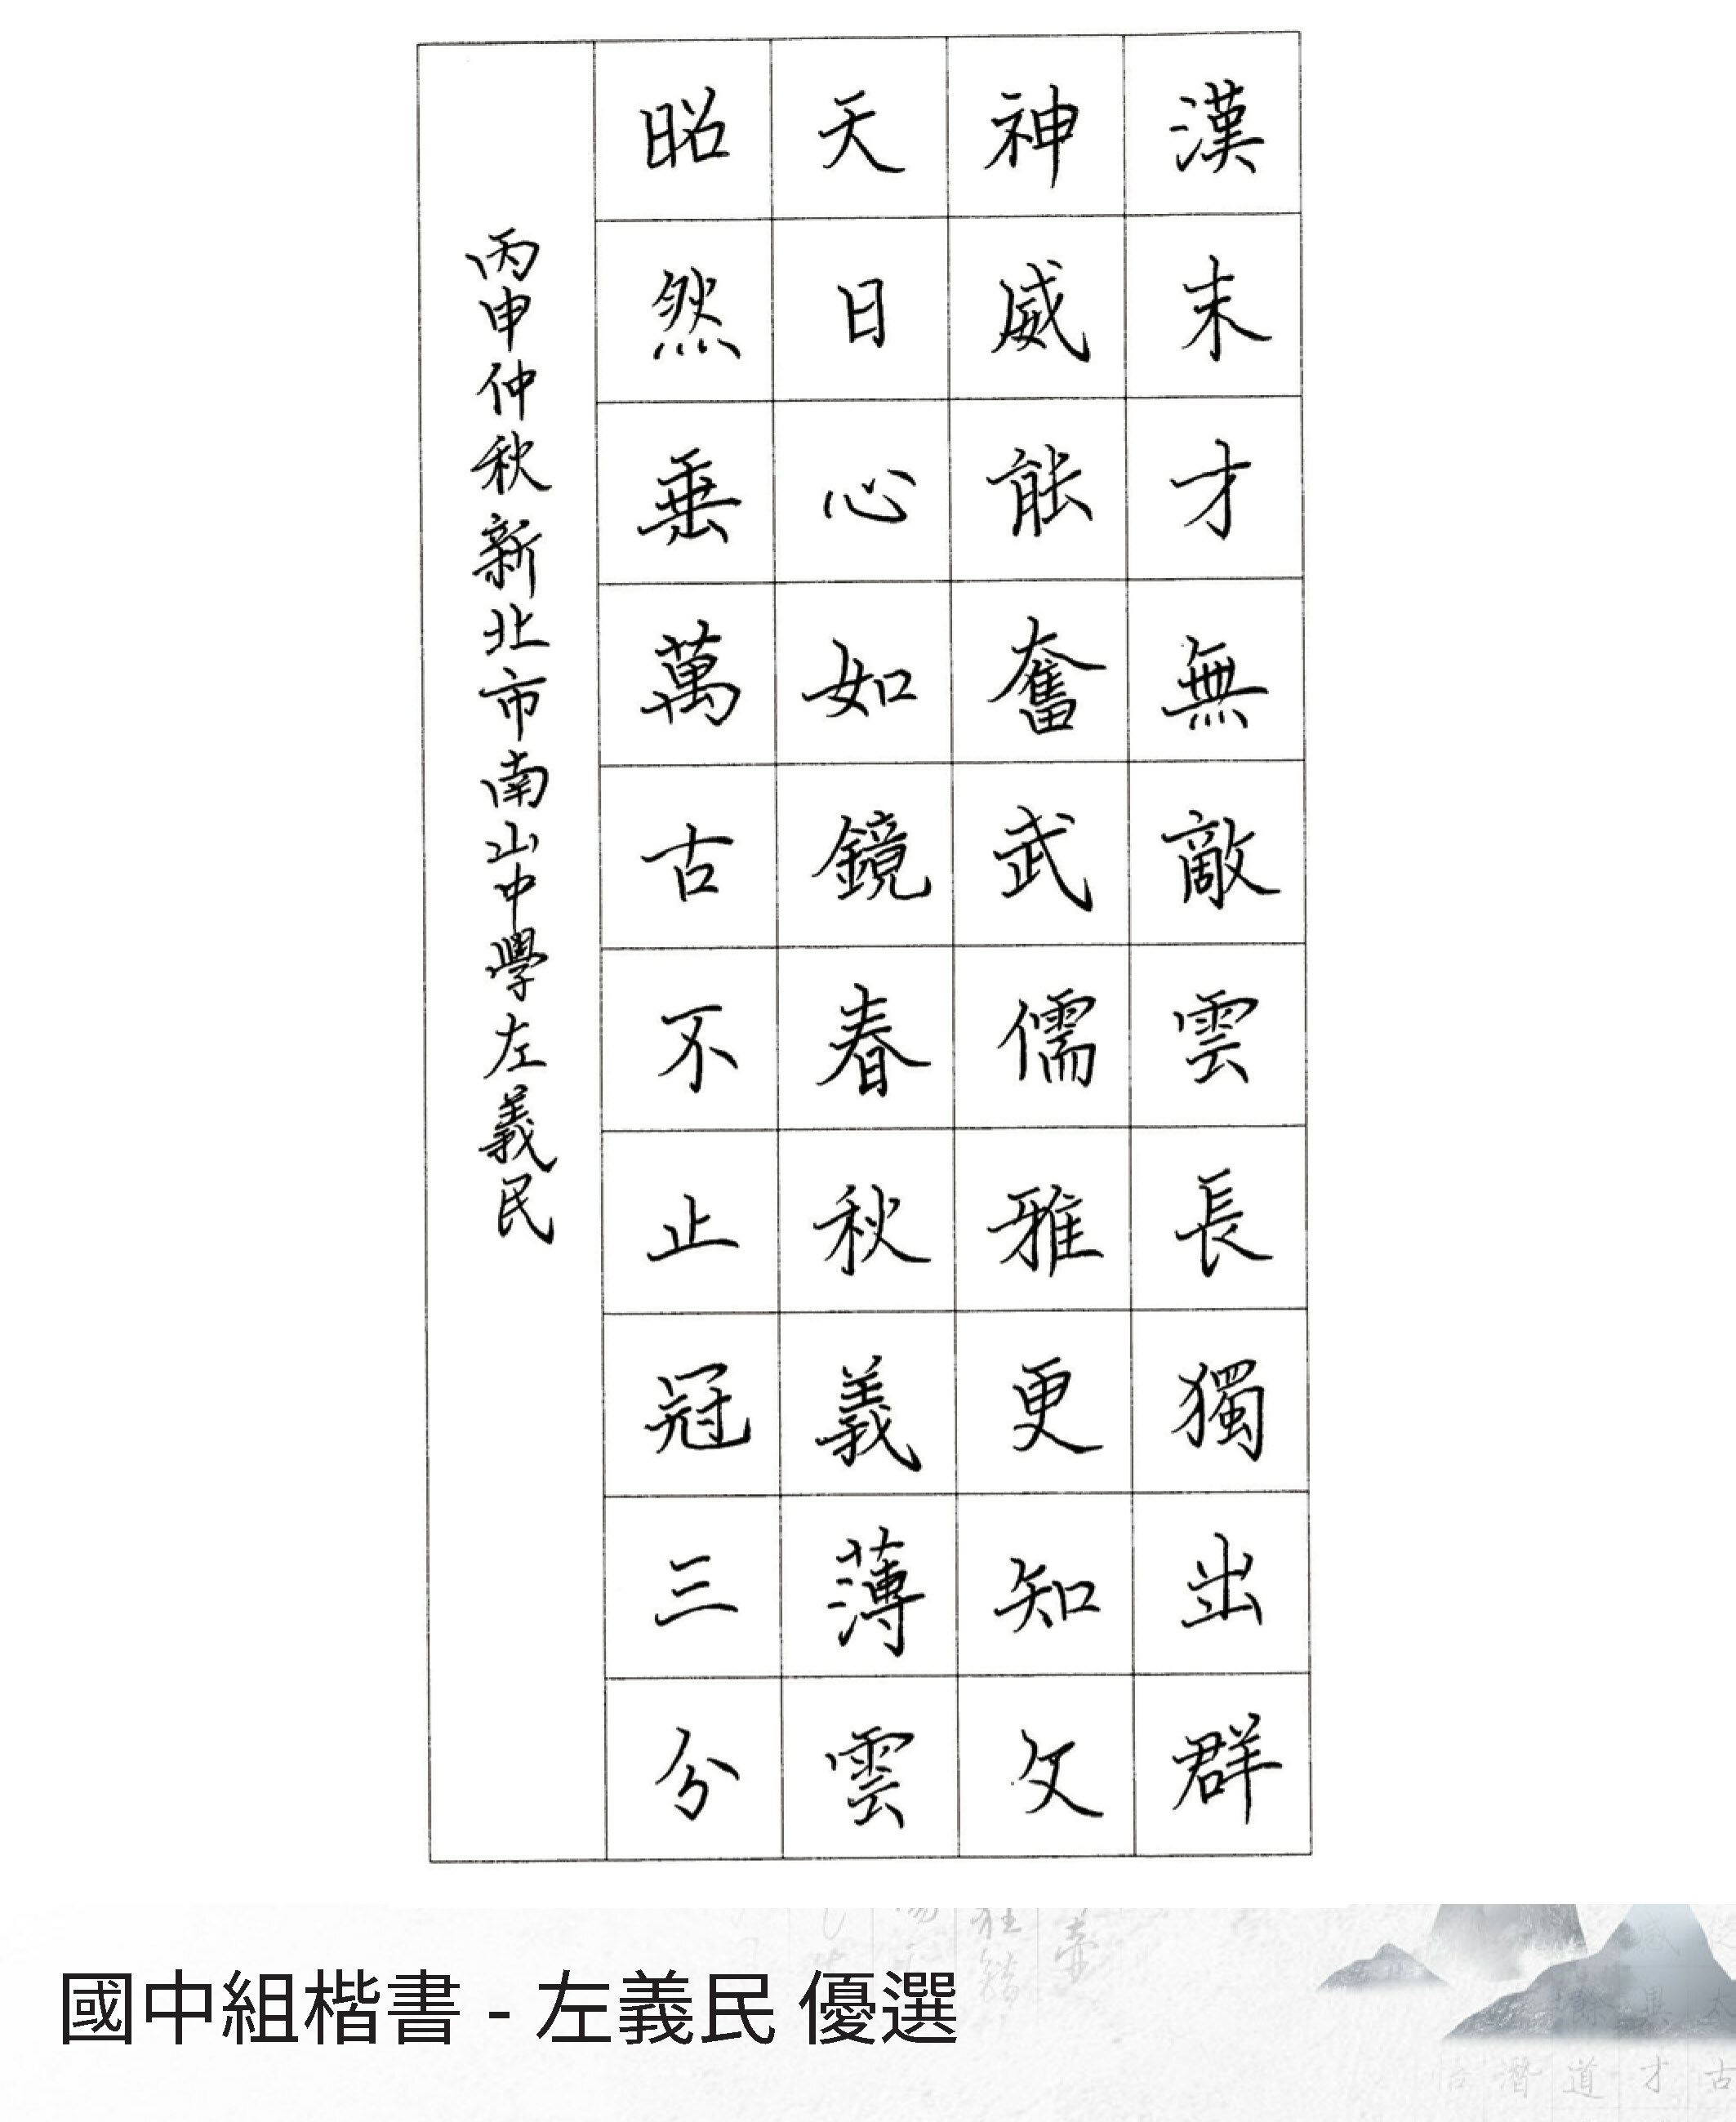 漢末才無敵雲長獨出群
神威能奮武儒雅更知文
天日心如鏡春秋義薄雲
昭然垂萬古不止冠三分
丙申仲秋新北市南山中學左義民
國中組楷書 - 左義民 優選